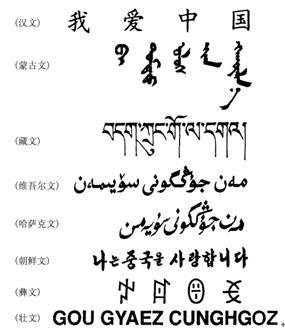 (汉文) 我 爱 中 国
(蒙古文)
(藏文) བདག་ཀྲུང་གོ་ལ་དགའ།
(维吾尔文) مەن جۇڭگونى سۆيىمەن
(哈萨克文) مەن جۇڭگونى سۇيەمىن
(朝鲜文) 나는 중국을 사랑합니다
(彝文)
(壮文) GOU GYAEZ CUNGHGOZ